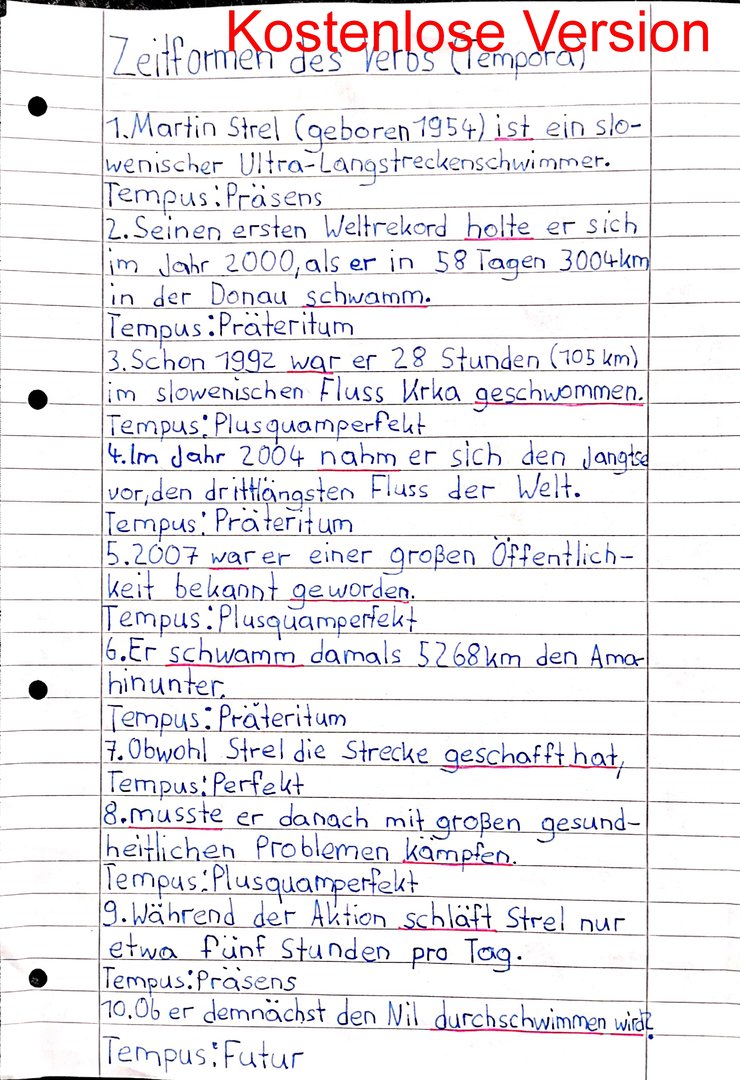 Kostenlose Version
Zeitformen des Verbs (Tempora)
1. Martin Strel (geboren 1954) ist ein slo-
wenischer Ultra-Langstreckenschwimmer.
Tempus: Präsens
2. Seinen ersten Weltrekord holte er sich
im Jahr 2000, als er in 58 Tagen 3004km
in der Donau schwamm.
Tempus: Präteritum
3. Schon 1992 war er 28 Stunden (105 km)
im slowenischen Fluss Krka geschwommen.
Tempus: Plusquamperfekt
4. Im Jahr 2004 nahm er sich den Jangtse
vor, den drittlängsten Fluss der Welt.
Tempus: Präteritum
5. 2007 war er einer großen Öffentlich-
keit bekannt geworden.
Tempus: Plusquamperfekt
6. Er schwamm damals 5268km den Ama-
hinunter.
Tempus: Präteritum
7. Obwohl Strel die Strecke geschafft hat,
Tempus: Perfekt
8. musste er danach mit großen gesund-
heitlichen Problemen kämpfen.
Tempus: Plusquamperfekt
9. Während der Aktion schläft Strel nur
etwa fünf Stunden pro Tag.
Tempus: Präsens
10. Ob er demnächst den Nil durchschwimmen wird?
Tempus: Futur